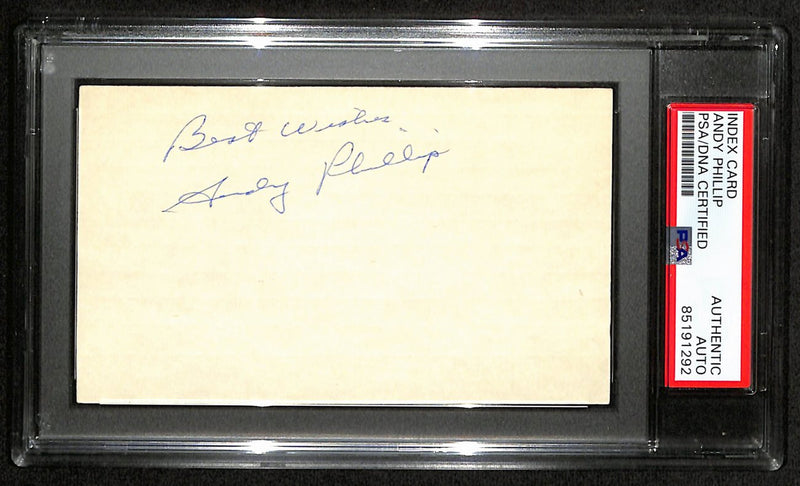 Best Wishes
Andy Phillip
INDEX CARD
ANDY PHILLIP
PSA/DNA CERTIFIED
PSA
AUTHENTIC
AUTO
85191292